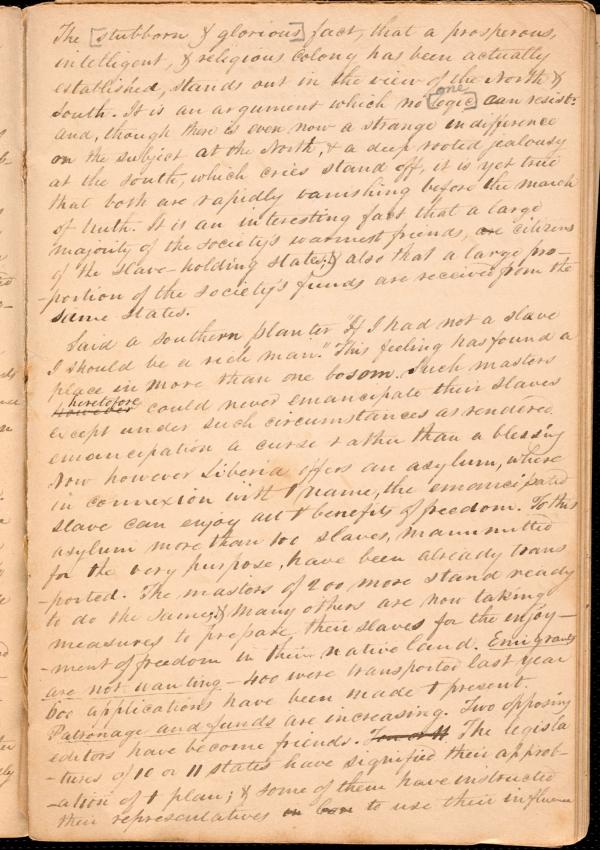 The [stubborn & glorious] fact, that a prosperous,
intelligent, & religious colony has been actually
established, stands out in the view of the North &
South. It is an argument which no [logic] one can resist:
and, though there is even now a strange indifference
on the subject at the North, & a deep rooted jealousy
at the South, which cries stand off, it is yet true
that both are rapidly vanishing before the march
of truth. It is an interesting fact that a large
majority of the Society's warmest friends, are citizens
of the slave-holding states; & also that a large pro-
-portion of the Society's funds are received from the
same states.
Said a Southern planter "If I had not a slave
I should be a rich man." This feeling has found a
place in more than one bosom. Such masters
however heretofore could never emancipate their slaves
except under such circumstances as rendered
emancipation a curse rather than a blessing
Now however Liberia offers an asylum, where
in connexion with t name, the emancipated
slave can enjoy all t benefits of freedom. To this
asylum more than 100 slaves, manumitted
for the very purpose, have been already trans
-ported. The masters of 200 more stand ready
to do the same; & many others are now taking
measures to prepare their slaves for the enjoy-
-ment of freedom in their native land. Emigrants
are not wanting - 400 were transported last year
600 applications have been made t present.
Patronage and funds are increasing. Two opposing
editors have become friends. Ten or 11 The legisla
-tures of 10 or 11 states have signified their approb-
-ation of t plan; & some of them have instructed
their representatives to use their influence